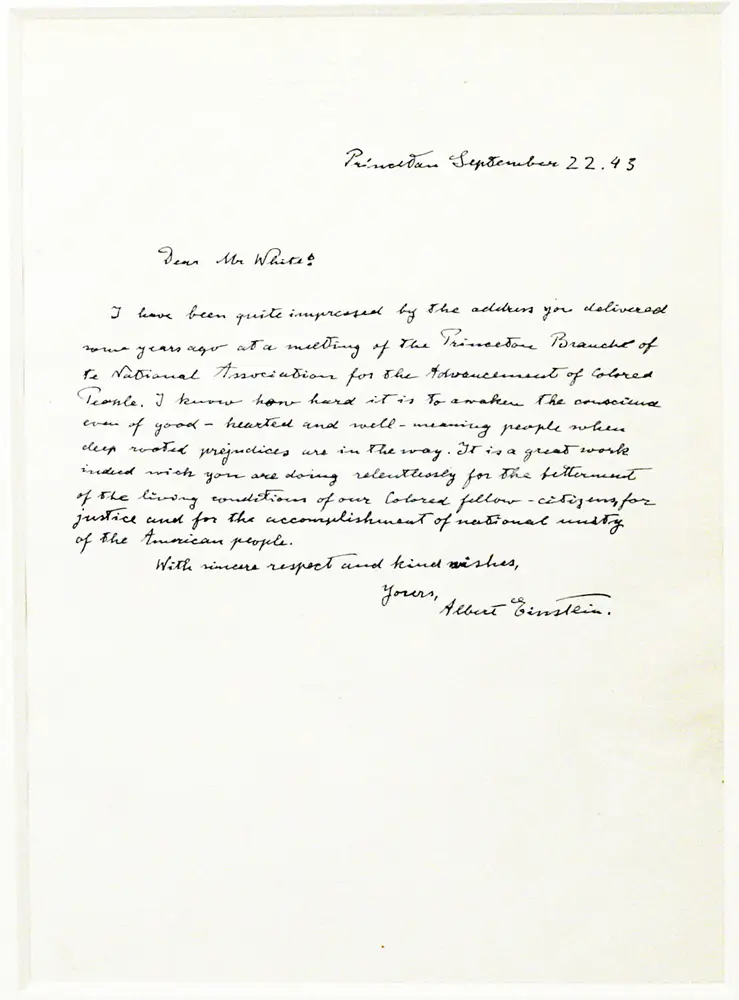 Princeton September 22.43
Dear Mr White:
I have been quite impressed by the address you delivered
some years ago at a meeting of the Princeton Branche of
te National Association for the Advancement of Colored
People. I know how hard it is to awaken the conscience
even of good-hearted and well-meaning people when
deep rooted prejudices are in the way. It is a great work
indeed wich you are doing relentlessly for the betterment
of the living conditions of our Colored fellow-citizens, for
justice and for the accomplishment of national unity
of the American people.
With sincere respect and kind wishes,
Yours,
Albert Einstein.